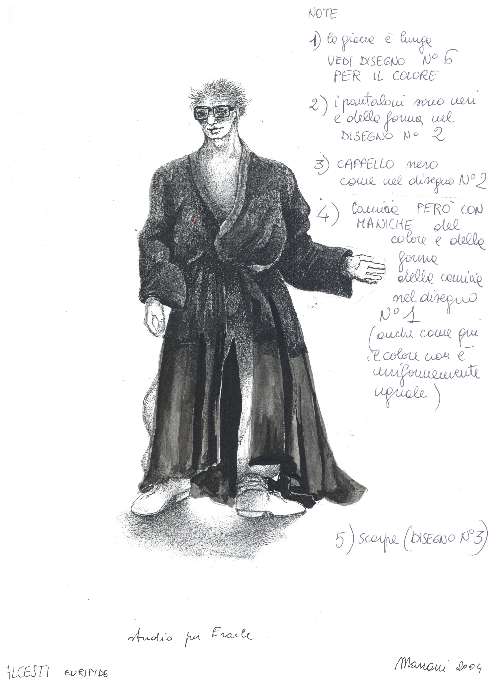 NOTE
1) la giacca è lunga
VEDI DISEGNO N° 6
PER IL COLORE
2) i pantaloni sono neri
e della forma nel
DISEGNO N° 2
3) CAPPELLO nero
come nel disegno N° 2
4) Camicia PERÒ CON
MANICHE del
colore e della
forma
della camicia
nel disegno
N° 1
(anche come qui
il colore non è
uniformemente
uguale)
5) Scarpe (DISEGNO N° 3)
studio per Eracle
ALCESTI EURIPIDE
2004